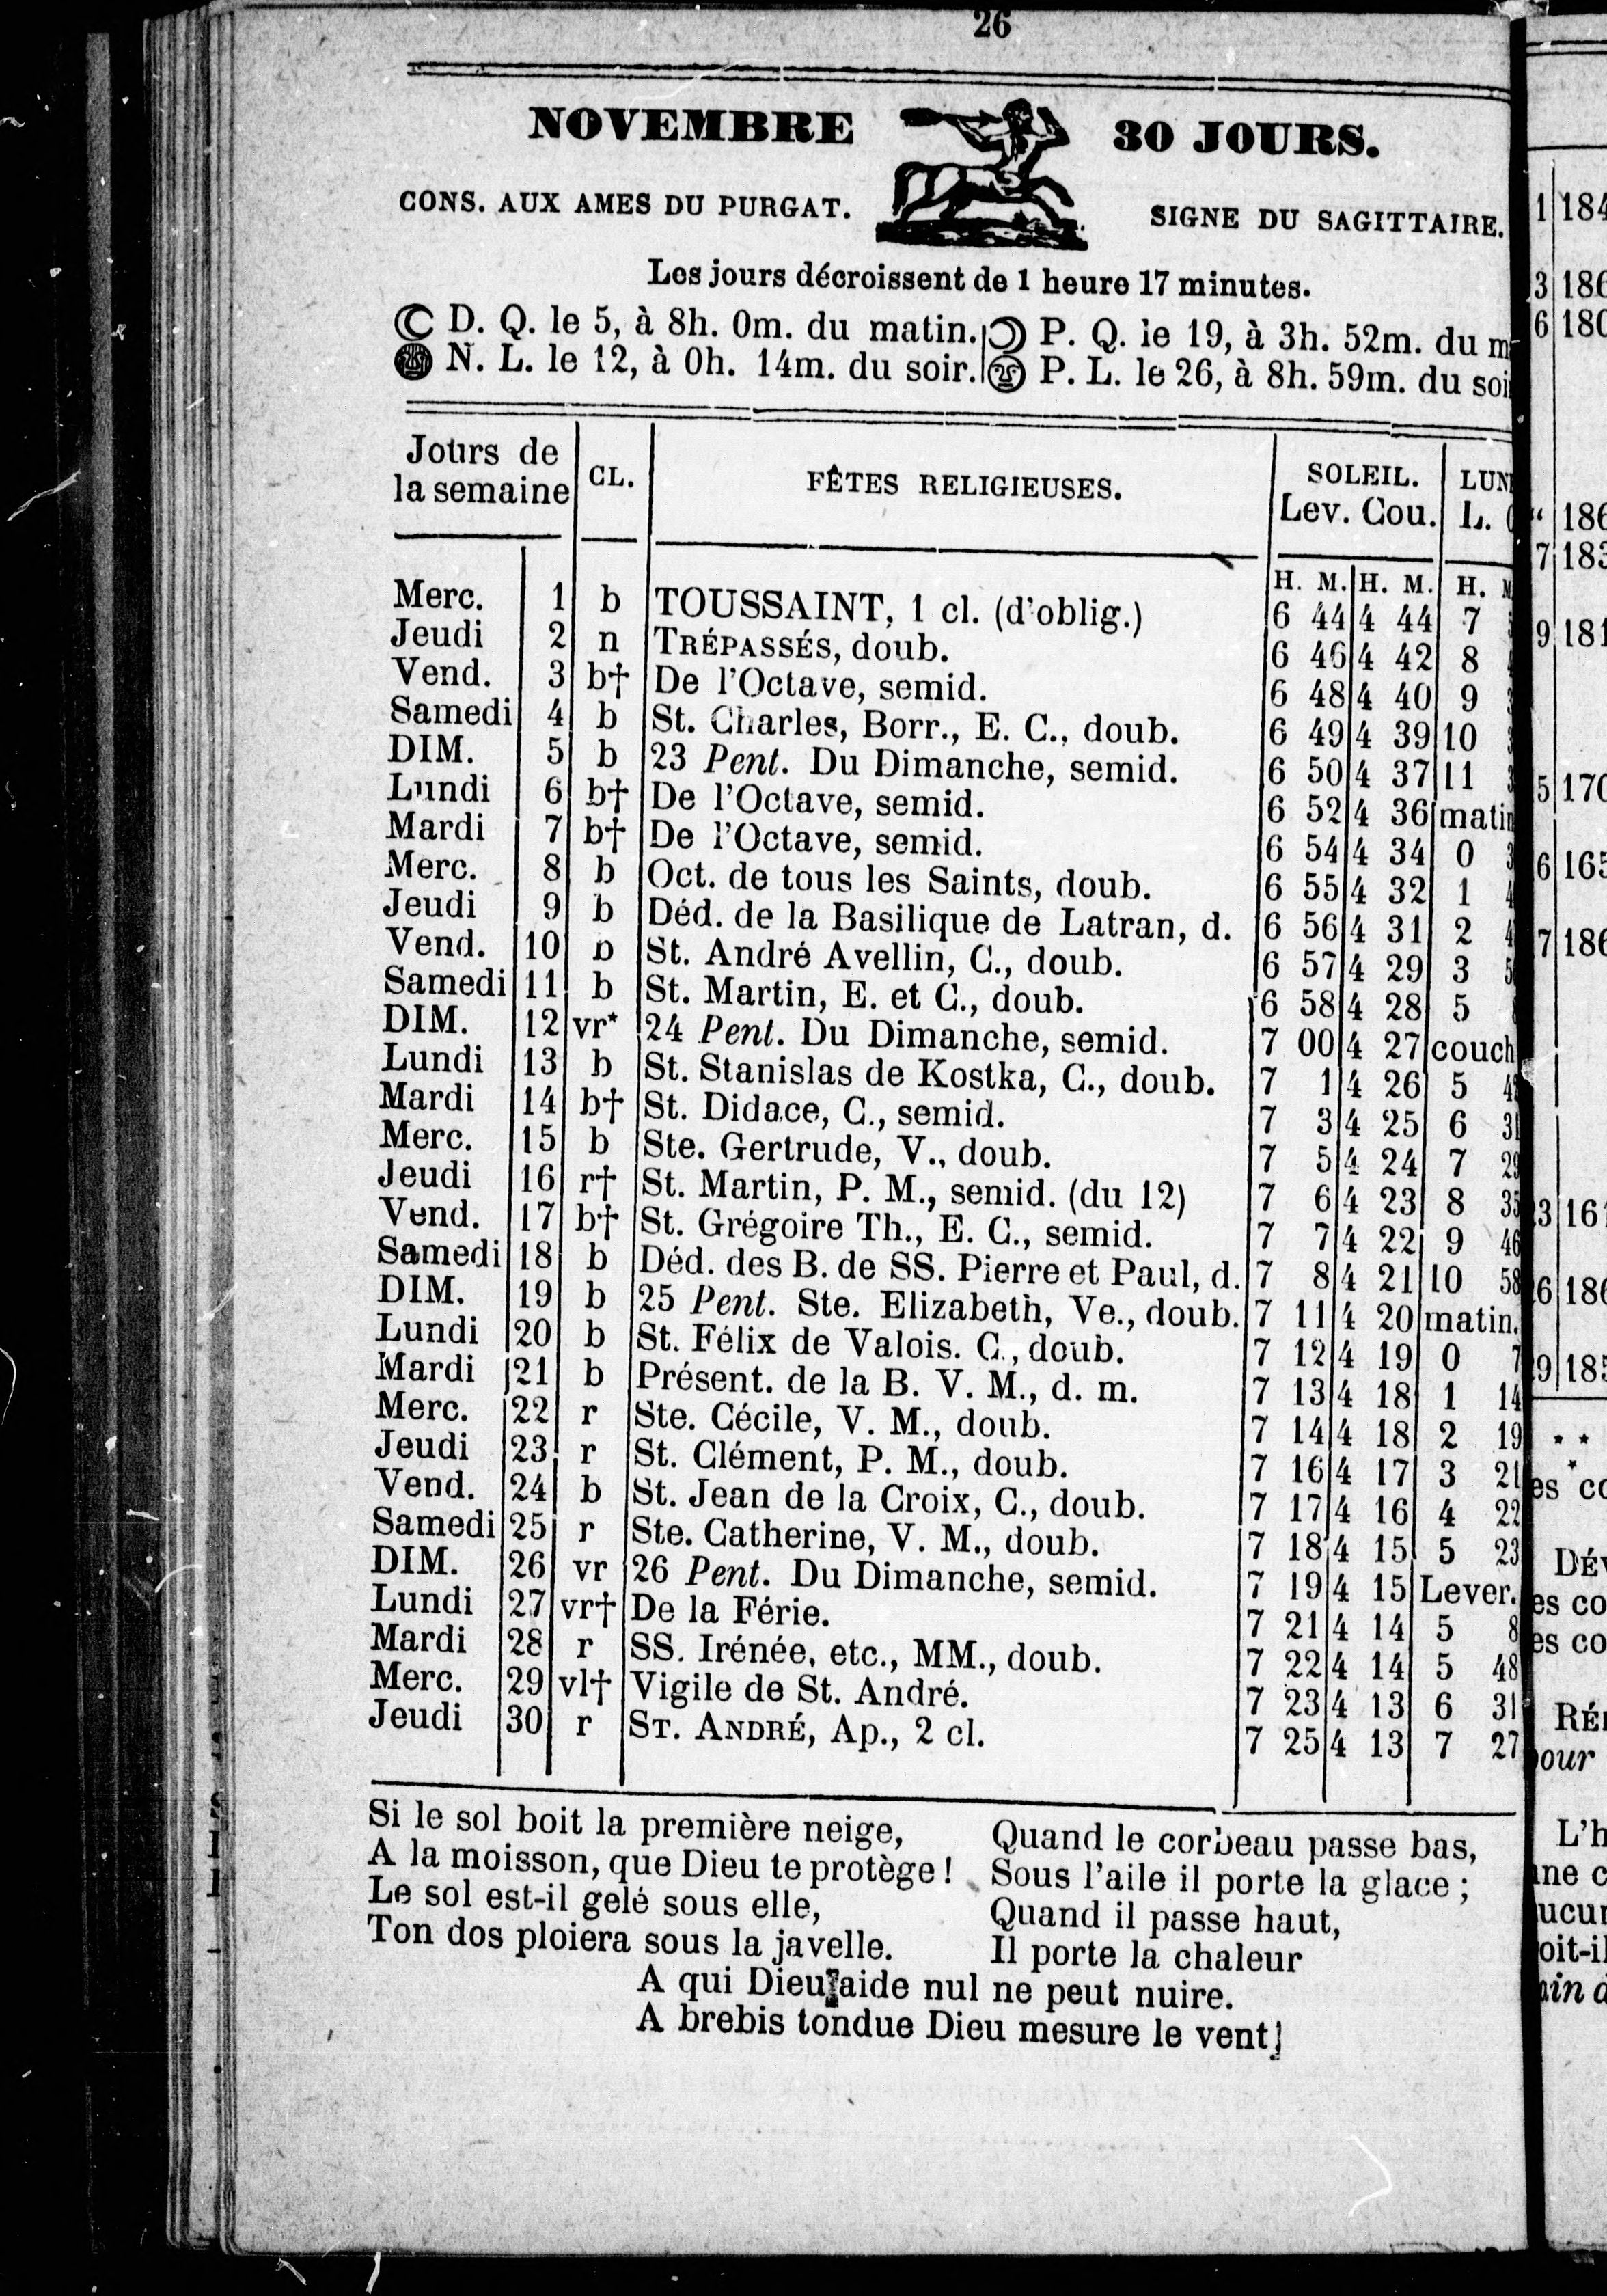 26
NOVEMBRE 30 JOURS.
CONS. AUX AMES DU PURGAT. SIGNE DU SAGITTAIRE.
Les jours décroissent de 1 heure 17 minutes.
D. Q. le 5, à 8h. 0m. du matin. P. Q. le 19, à 3h. 52m. du m
N. L. le 12, à 0h. 14m. du soir. P. L. le 26, à 8h. 59m. du soi
Jours de la semaine CL. FÊTES RELIGIEUSES. SOLEIL. LUN
Lev. Cou. L.
H. M. H. M. H. M
Merc. 1 b TOUSSAINT, 1 cl. (d'oblig.) 6 44 4 44 7
Jeudi 2 n TRÉPASSÉS, doub. 6 46 4 42 8
Vend. 3 b† De l'Octave, semid. 6 48 4 40 9
Samedi 4 b St. Charles, Borr., E. C., doub. 6 49 4 39 10
DIM. 5 b 23 Pent. Du Dimanche, semid. 6 50 4 37 11
Lundi 6 b† De l'Octave, semid. 6 52 4 36 matin
Mardi 7 b† De l'Octave, semid. 6 54 4 34 0
Merc. 8 b Oct. de tous les Saints, doub. 6 55 4 32 1
Jeudi 9 b Déd. de la Basilique de Latran, d. 6 56 4 31 2
Vend. 10 b St. André Avellin, C., doub. 6 57 4 29 3
Samedi 11 b St. Martin, E. et C., doub. 6 58 4 28 5
DIM. 12 vr* 24 Pent. Du Dimanche, semid. 7 00 4 27 couch
Lundi 13 b St. Stanislas de Kostka, C., doub. 7 1 4 26 5
Mardi 14 b† St. Didace, C., semid. 7 3 4 25 6 31
Merc. 15 b Ste. Gertrude, V., doub. 7 5 4 24 7 29
Jeudi 16 r† St. Martin, P. M., semid. (du 12) 7 6 4 23 8 35
Vend. 17 b† St. Grégoire Th., E. C., semid. 7 7 4 22 9 46
Samedi 18 b Déd. des B. de SS. Pierre et Paul, d. 7 8 4 21 10 58
DIM. 19 b 25 Pent. Ste. Elizabeth, Ve., doub. 7 11 4 20 matin.
Lundi 20 b St. Félix de Valois. C., doub. 7 12 4 19 0 7
Mardi 21 b Présent. de la B. V. M., d. m. 7 13 4 18 1 14
Merc. 22 r Ste. Cécile, V. M., doub. 7 14 4 18 2 19
Jeudi 23 r St. Clément, P. M., doub. 7 16 4 17 3 21
Vend. 24 b St. Jean de la Croix, C., doub. 7 17 4 16 4 22
Samedi 25 r Ste. Catherine, V. M., doub. 7 18 4 15 5 23
DIM. 26 vr 26 Pent. Du Dimanche, semid. 7 19 4 15 Lever.
Lundi 27 vr† De la Férie. 7 21 4 14 5 8
Mardi 28 r SS. Irénée, etc., MM., doub. 7 22 4 14 5 48
Merc. 29 vl† Vigile de St. André. 7 23 4 13 6 31
Jeudi 30 r ST. ANDRÉ, Ap., 2 cl. 7 25 4 13 7 27
Si le sol boit la première neige,
A la moisson, que Dieu te protège !
Le sol est-il gelé sous elle,
Ton dos ploiera sous la javelle.
Quand le corbeau passe bas,
Sous l'aile il porte la glace ;
Quand il passe haut,
Il porte la chaleur
A qui Dieu aide nul ne peut nuire.
A brebis tondue Dieu mesure le vent!